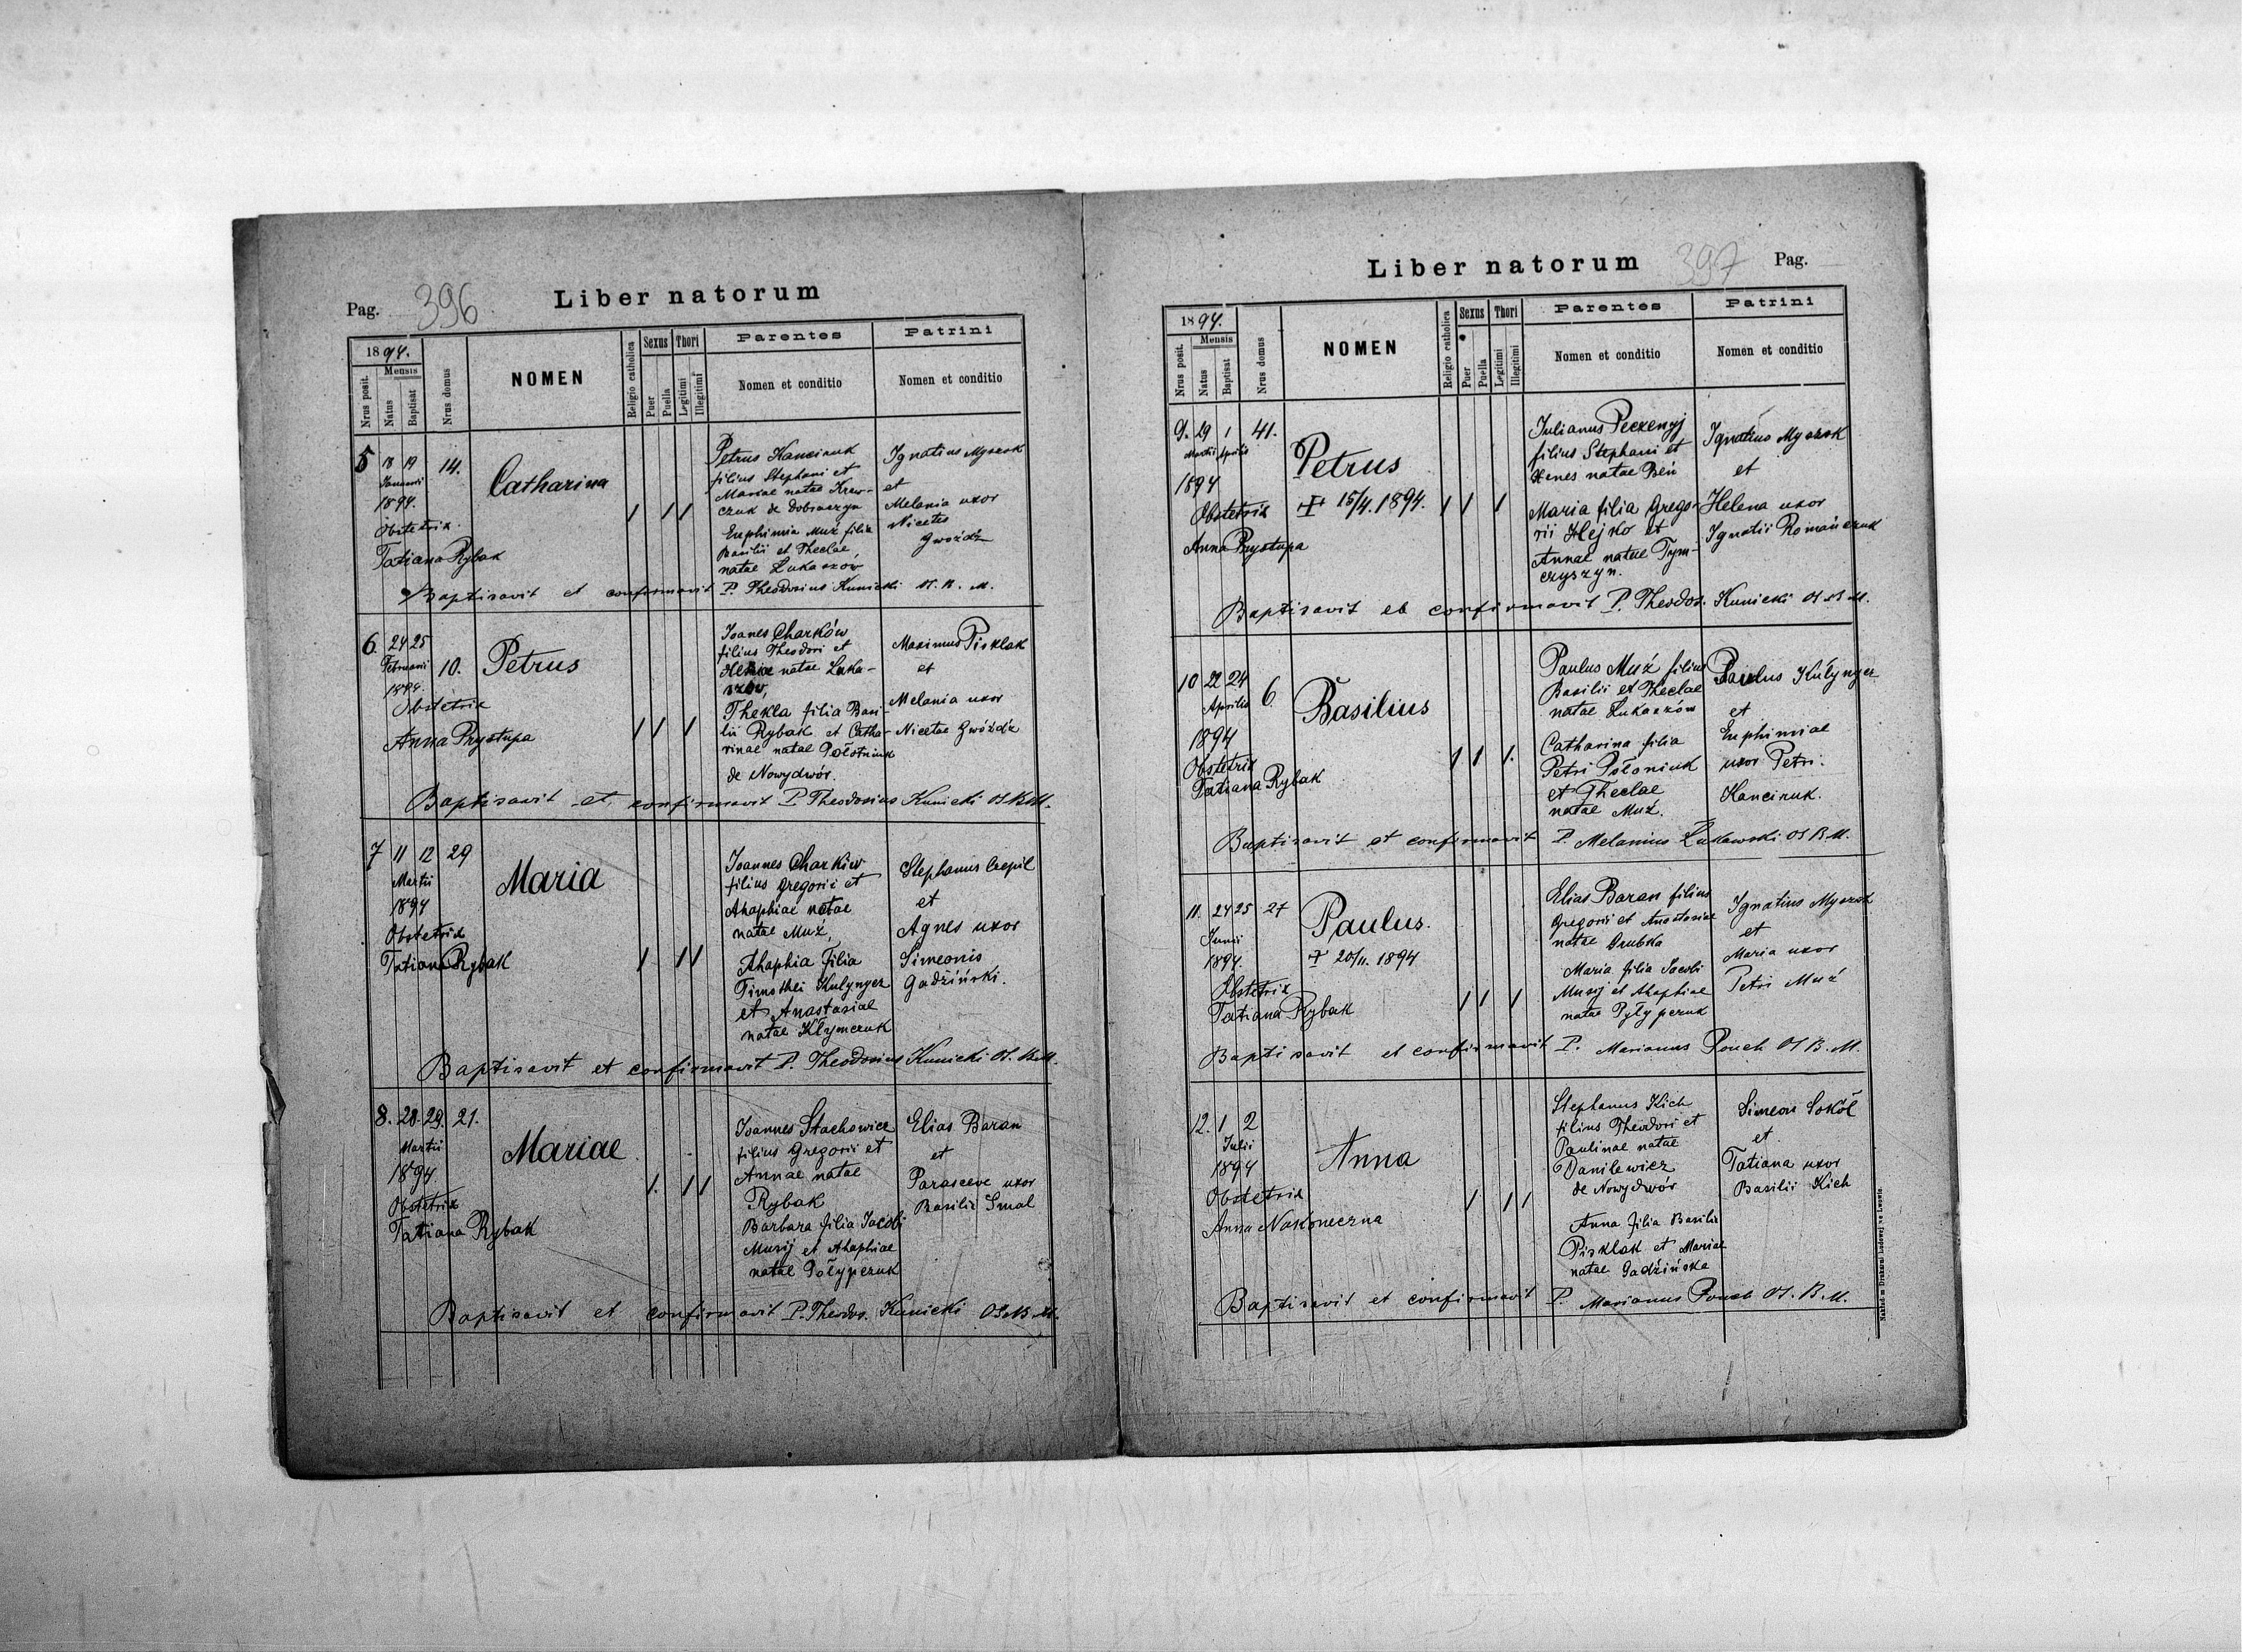 Pag. 396
Liber natorum
1894.
Mensis
Nrus posit.
Natus
Baptisat
Nrus domus
NOMEN
Religio catholica
Sexus
Puer
Puella
Thori
Legitimi
Illegitimi
Parentes
Nomen et conditio
Patrini
Nomen et conditio
5 18 19 14.
Januarii
1894.
Obstetrix
Tatiana Rybak
Catharina
1 1 1
Petrus Kanciruk
filius Stephani et
Mariae natae Kraw-
czuk de Dobraczyn
Euphimia Muź filia
Basilii et Theclae
natae Łukaszów
Ignatius Myszak
et
Melania uxor
Nicetes
Gwoźdź
Baptisavit et confirmavit P. Theodosius Kunicki O.S.B.M.
6. 24 25 10.
Februarii
1894.
Obstetrix
Anna Prystupa
Petrus
1 1 1
Joanes Charków
filius Theodori et
natae Łuka-
szów,
Thekla filia Basi-
lii Rybak et Catha-
rinae natae Połotniuk
de Nowydwór.
Maximus Pisklak
et
Melania uxor
Nicetae Gwóźdź
Baptisavit et confirmavit P. Theodosius Kunicki OSBM.
7 11 12 29
Martii
1894
Obstetrix
Tatiana Rybak
Maria
1 1 1
Joannes Charkiw
filius Gregorii et
Ahaphiae natae
natae Muź,
Ahaphia filia
Timothei Kulynycz
et Anastasiae
natae Kłymczuk
Stephanus Czepil
et
Agnes uxor
Simeonis
Gadźiński.
Baptisavit et confirmavit P. Theodosius Kunicki O.S.B.M.
8. 28. 29. 21.
Martii
1894.
Obstetrix
Tatiana Rybak
Mariae
1. 1 1
Joannes Stachowicz
filius Gregorii et
Annae natae
Rybak
Barbara filia Jacobi
Musij et Ahaphiae
natae Połypczuk
Elias Baran
et
Parasceve uxor
Basilii Smal
Baptisavit et confirmavit P. Theodos. Kunicki OSBM.
Liber natorum
397 Pag.
1894.
Mensis
Nrus posit.
Natus
Baptisat
Nrus domus
NOMEN
Religio catholica
Sexus
Puer
Puella
Thori
Legitimi
Illegitimi
Parentes
Nomen et conditio
Patrini
Nomen et conditio
9. 29 1 41.
Martii Aprilis
1894
Obstetrix
Anna Prystupa
Petrus
15/4. 1894.
1 1 1
Julianus Peczenyj
filius Stephani et
natae Beń
Maria filia Grego-
rii Hejko et
Annae natae Tym-
czyszyn.
Ignatius Myszak
et
Helena uxor
Ignatii Romańczuk
Baptisavit et confirmavit P. Theodos. Kunicki OSBM.
10 22 24 6.
Aprilis
1894
Obstetrix
Tatiana Rybak
Basilius
1 1 1.
Paulus Muź filius
Basilii et Theclae
natae Łukaszów
Catharina filia
Petri Połoniuk
et Theclae
natae Muź.
Paulus Kułynycz
et
Euphimiae
uxor Petri
Kanciruk.
Baptisavit et confirmavit P. Melanius OSBM.
11. 24 25 27
Junii
1894.
Obstetrix
Tatiana Rybak
Paulus.
20/11. 1894
1 1 1
Elias Baran filius
Gregorii et Anastasiae
natae
Maria filia Jacobi
Musij et Ahaphiae
natae Pyłypczuk
Ignatius Myszak
et
Maria uxor
Petri Muź
Baptisavit et confirmavit P. Marianus OSB.M.
12. 1 2
Julii
1894
Obstetrix
Anna Nakoneczna
Anna
1 1 1
Stephanus Kich
filius Theodori et
Paulinae natae
Danilewicz
de Nowydwór
Anna filia Basilii
Pisklak et Mariae
natae Gadźińska
Simeon Sokół
et
Tatiana uxor
Basilii Kich
Baptisavit et confirmavit P. Marianus O.S.B.M.
Nakładem Drukarni Ludowej we Lwowie.